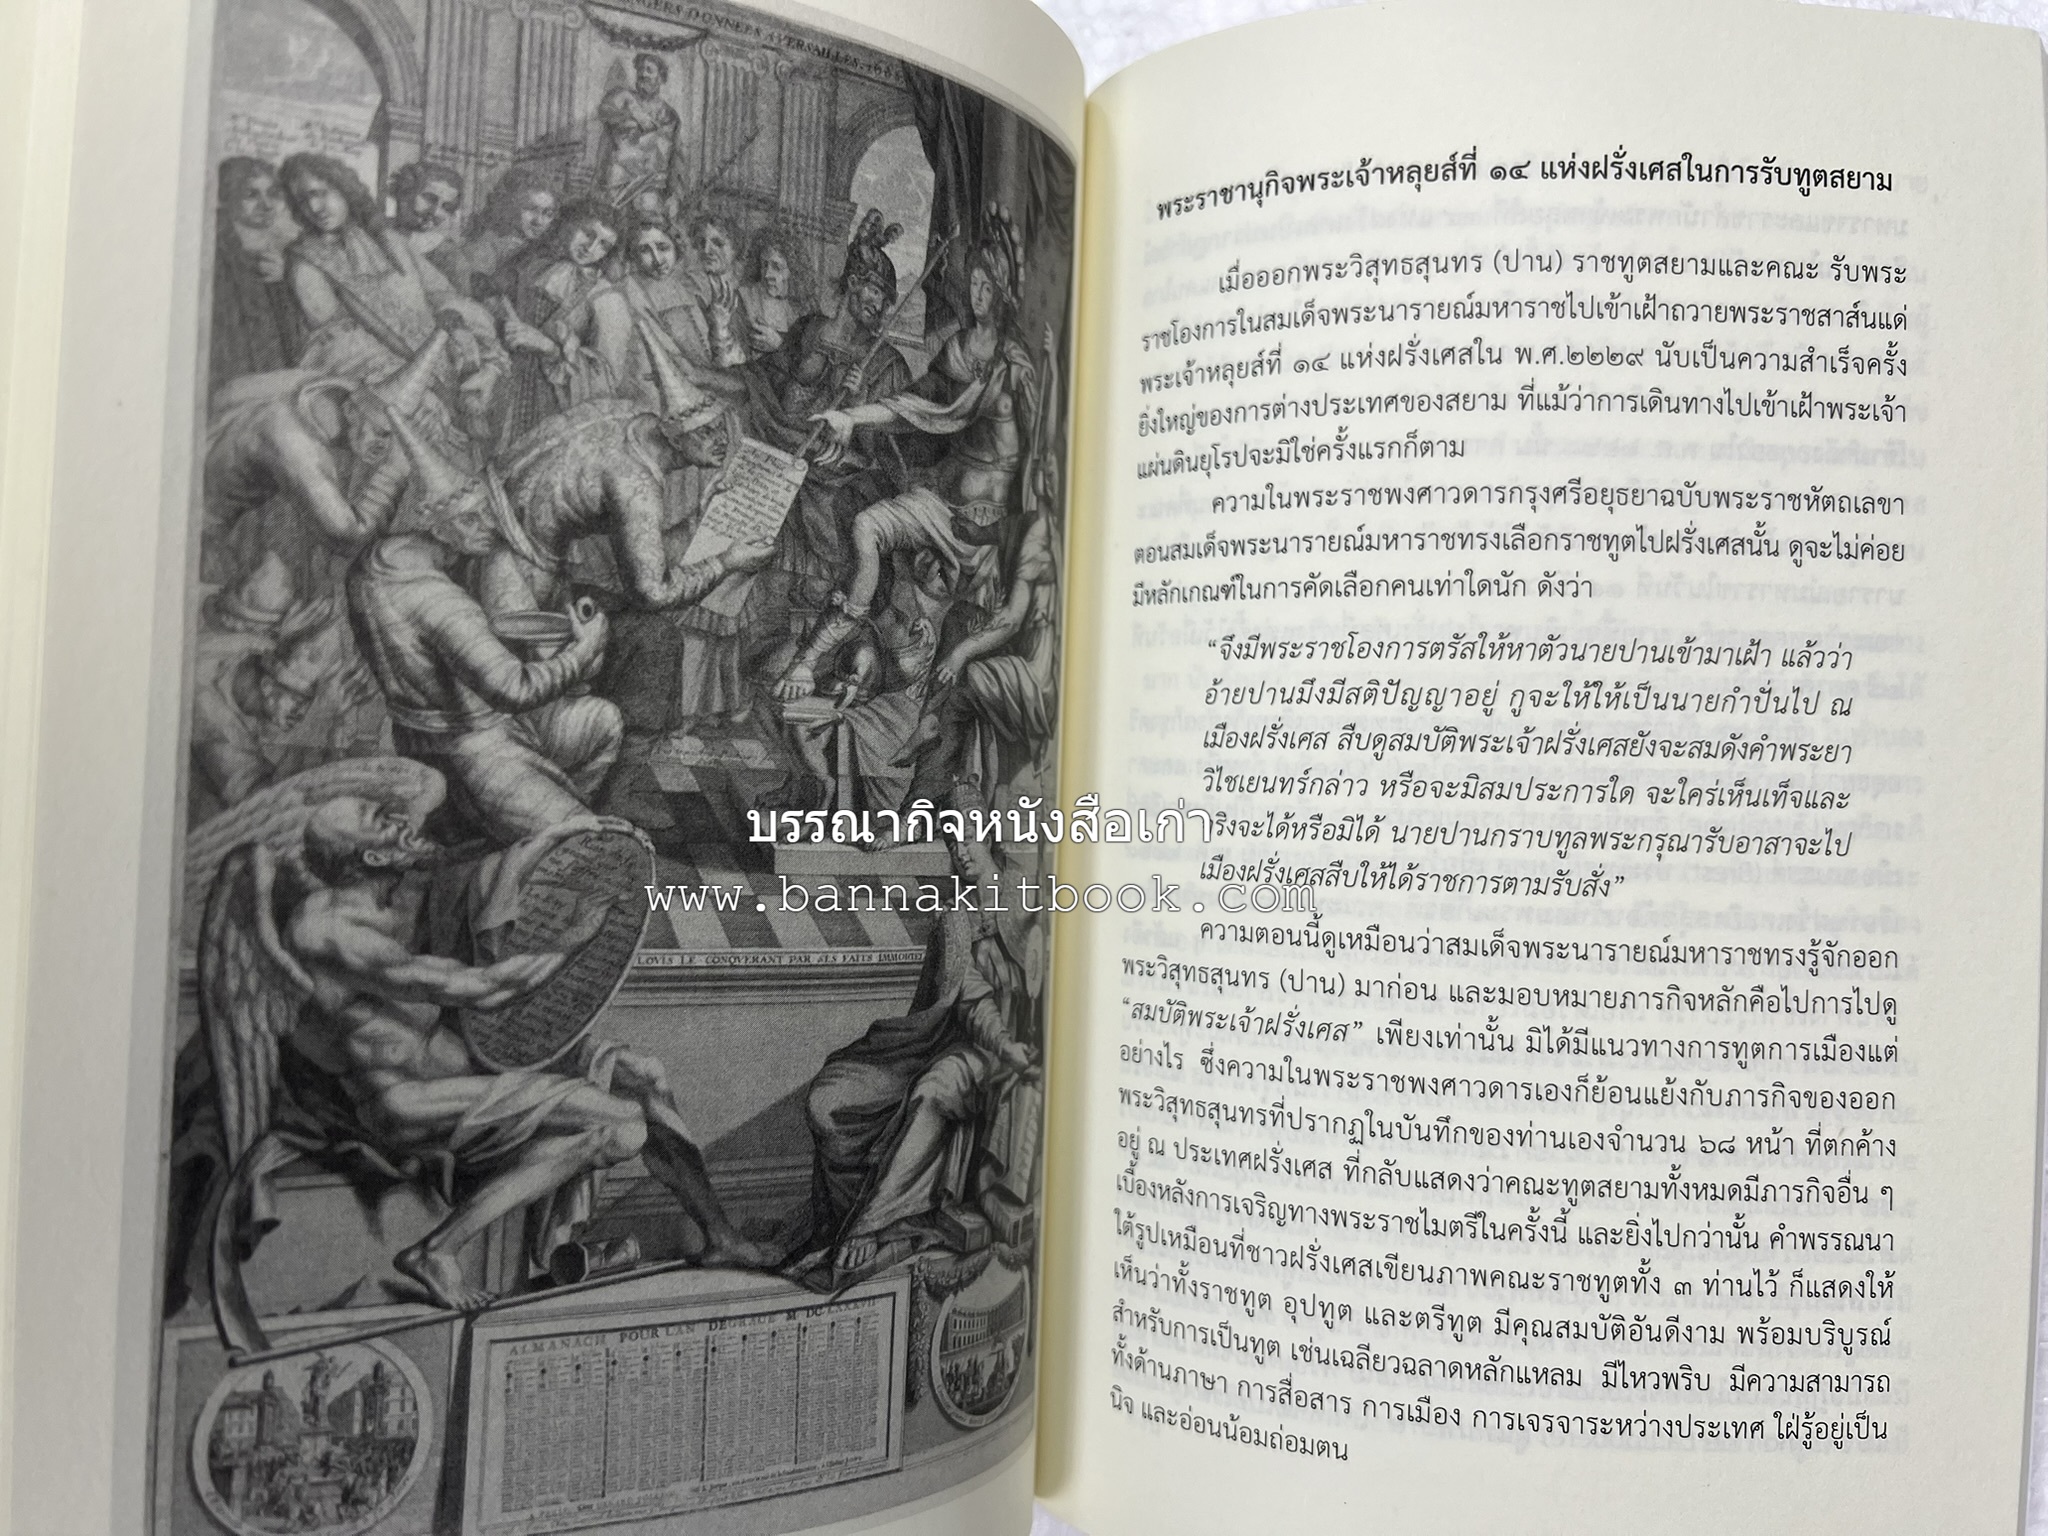 NGERS DONNEES A VERSAILLES. 168
LOVIS LE CONQVERANT PAR SES FAITS IMMORTEL
ALMANACH POUR LAN DEGRACE M DC LXXXVII
บรรณากิจหนังสือเก่า
www.bannakitbook.com
พระราชานุกิจพระเจ้าหลุยส์ที่ ๑๔ แห่งฝรั่งเศสในการรับทูตสยาม
เมื่อออกพระวิสุทธสุนทร (ปาน) ราชทูตสยามและคณะ รับพระ
ราชโองการในสมเด็จพระนารายณ์มหาราชไปเข้าเฝ้าถวายพระราชสาส์นแด่
พระเจ้าหลุยส์ที่ ๑๔ แห่งฝรั่งเศสใน พ.ศ.๒๒๒๙ นับเป็นความสำเร็จครั้ง
ยิ่งใหญ่ของการต่างประเทศของสยาม ที่แม้ว่าการเดินทางไปเข้าเฝ้าพระเจ้า
แผ่นดินยุโรปจะมิใช่ครั้งแรกก็ตาม
ความในพระราชพงศาวดารกรุงศรีอยุธยาฉบับพระราชหัตถเลขา
ตอนสมเด็จพระนารายณ์มหาราชทรงเลือกราชทูตไปฝรั่งเศสนั้น ดูจะไม่ค่อย
มีหลักเกณฑ์ในการคัดเลือกคนเท่าใดนัก ดังว่า
“จึงมีพระราชโองการตรัสให้หาตัวนายปานเข้ามาเฝ้า แล้วว่า
อ้ายปานมึงมีสติปัญญาอยู่ กูจะให้ให้เป็นนายกำปั่นไป ณ
เมืองฝรั่งเศส สืบดูสมบัติพระเจ้าฝรั่งเศสยังจะสมดังคำพระยา
วิไชเยนทร์กล่าว หรือจะมิสมประการใด จะใคร่เห็นเท็จและ
จริงจะได้หรือมิได้ นายปานกราบทูลพระกรุณารับอาสาจะไป
เมืองฝรั่งเศสสืบให้ได้ราชการตามรับสั่ง”
ความตอนนี้ดูเหมือนว่าสมเด็จพระนารายณ์มหาราชทรงรู้จักออก
พระวิสุทธสุนทร (ปาน) มาก่อน และมอบหมายภารกิจหลักคือไปการไปดู
“สมบัติพระเจ้าฝรั่งเศส” เพียงเท่านั้น มิได้มีแนวทางการทูตการเมืองแต่
อย่างไร ซึ่งความในพระราชพงศาวดารเองก็ย้อนแย้งกับภารกิจของออก
พระวิสุทธสุนทรที่ปรากฏในบันทึกของท่านเองจำนวน ๖๘ หน้า ที่ตกค้าง
อยู่ ณ ประเทศฝรั่งเศส ที่กลับแสดงว่าคณะทูตสยามทั้งหมดมีภารกิจอื่น ๆ
เบื้องหลังการเจริญทางพระราชไมตรีในครั้งนี้ และยิ่งไปกว่านั้น คำพรรณนา
ใต้รูปเหมือนที่ชาวฝรั่งเศสเขียนภาพคณะราชทูตทั้ง ๓ ท่านไว้ ก็แสดงให้
เห็นว่าทั้งราชทูต อุปทูต และตรีทูต มีคุณสมบัติอันดีงาม พร้อมบริบูรณ์
สำหรับการเป็นทูต เช่นเฉลียวฉลาดหลักแหลม มีไหวพริบ มีความสามารถ
ทั้งด้านภาษา การสื่อสาร การเมือง การเจรจาระหว่างประเทศ ใฝ่รู้อยู่เป็น
นิจ และอ่อนน้อมถ่อมตน